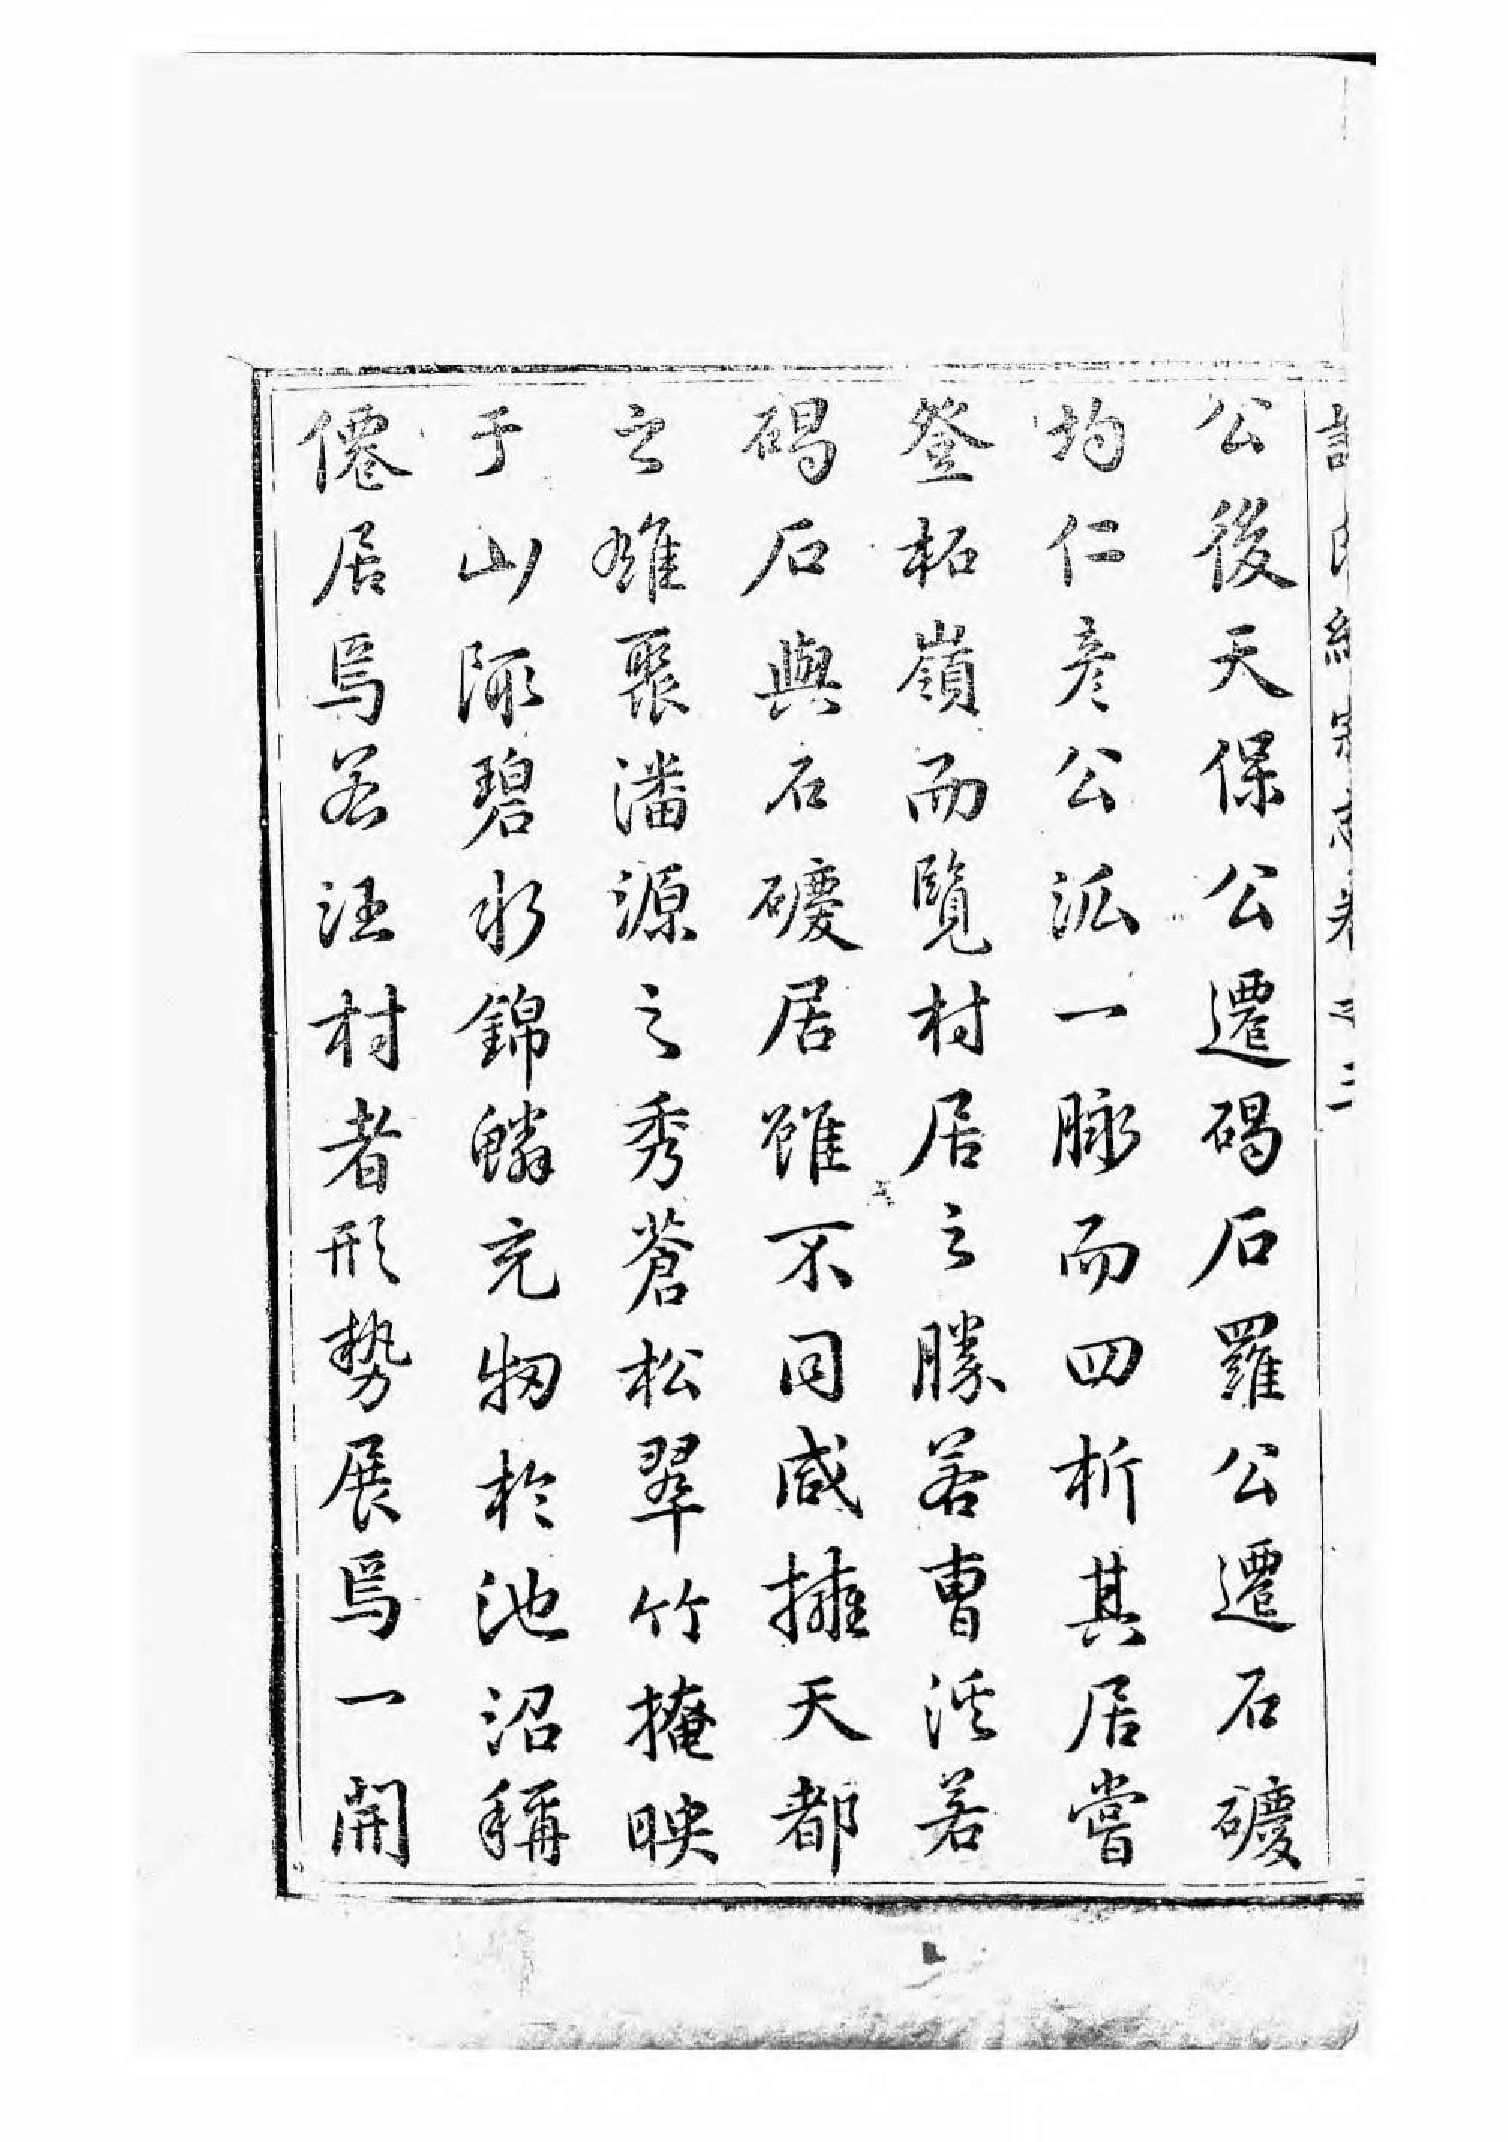 統宗志卷三 二
公後天保公遷碣石羅公遷石礦
均仁彥公派一脉而四析其居嘗
登柘嶺而覽村居之勝若曹溪若
碣石與石礦居雖不同咸擁天都
之雄聚潘源之秀蒼松翠竹掩映
于山隊碧水錦鱗充牣於池沼稱
僊居焉若汪村者形勢展焉一開